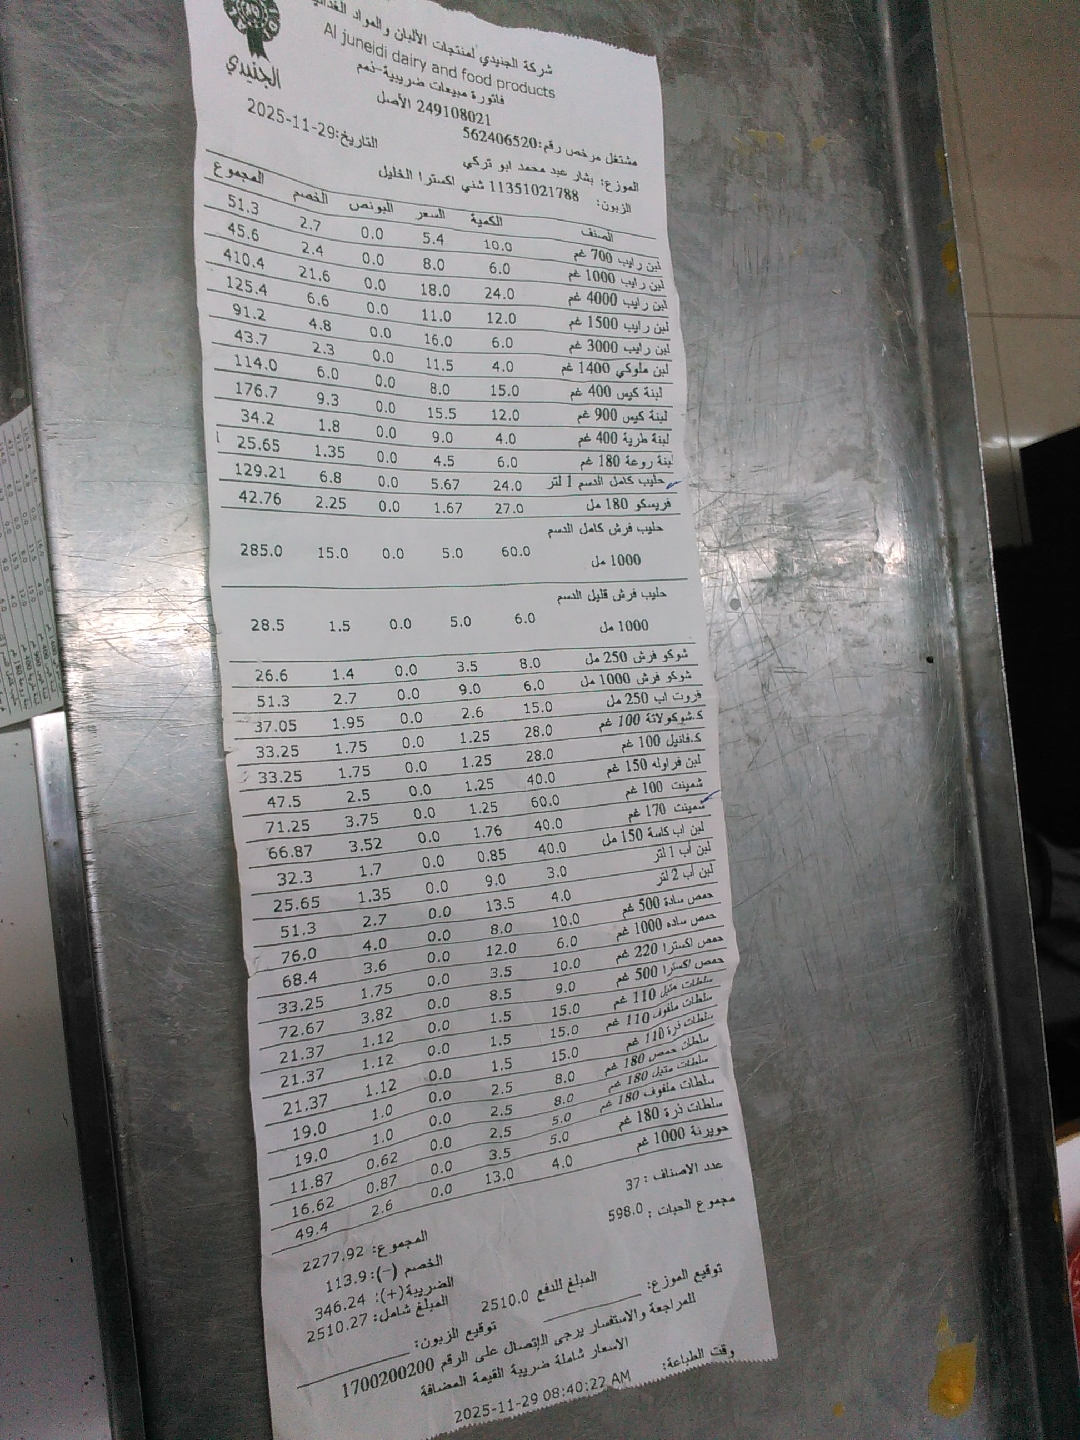 شركة الجنيدي لمنتجات الألبان والمواد الغذائية
Al juneidi dairy and food products
الجنيدي
فاتورة مبيعات ضريبية-نعم
249108021 الأصل
مشتغل مرخص رقم:562406520
التاريخ:2025-11-29
الموزع: بشار عبد محمد ابو تركي
الزبون: 11351021788 شني اكسترا الخليل
الصنف الكمية السعر البونص الخصم المجموع
لبن رايب 700 غم 10.0 5.4 0.0 2.7 51.3
لبن رايب 1000 غم 6.0 8.0 0.0 2.4 45.6
لبن رايب 4000 غم 24.0 18.0 0.0 21.6 410.4
لبن رايب 1500 غم 12.0 11.0 0.0 6.6 125.4
لبن رايب 3000 غم 6.0 16.0 0.0 4.8 91.2
لبن ملوكي 1400 غم 4.0 11.5 0.0 2.3 43.7
لبنة كيس 400 غم 15.0 8.0 0.0 6.0 114.0
لبنة كيس 900 غم 12.0 15.5 0.0 9.3 176.7
لبنة طرية 400 غم 4.0 9.0 0.0 1.8 34.2
لبنة روعة 180 غم 6.0 4.5 0.0 1.35 25.65
حليب كامل الدسم 1 لتر 24.0 5.67 0.0 6.8 129.21
فريسكو 180 مل 27.0 1.67 0.0 2.25 42.76
حليب فرش كامل الدسم
1000 مل 60.0 5.0 0.0 15.0 285.0
حليب فرش قليل الدسم
1000 مل 6.0 5.0 0.0 1.5 28.5
شوكو فرش 250 مل 8.0 3.5 0.0 1.4 26.6
شوكو فرش 1000 مل 6.0 9.0 0.0 2.7 51.3
فروت اب 250 مل 15.0 2.6 0.0 1.95 37.05
ك.شوكولاتة 100 غم 28.0 1.25 0.0 1.75 33.25
ك.فانيل 100 غم 28.0 1.25 0.0 1.75 33.25
لبن فراوله 150 غم 40.0 1.25 0.0 2.5 47.5
شمينت 100 غم 60.0 1.25 0.0 3.75 71.25
شمينت 170 غم 40.0 1.76 0.0 3.52 66.87
لبن اب كاسة 150 مل 40.0 0.85 0.0 1.7 32.3
لبن أب 1 لتر 3.0 9.0 0.0 1.35 25.65
لبن أب 2 لتر 4.0 13.5 0.0 2.7 51.3
حمص سادة 500 غم 10.0 8.0 0.0 4.0 76.0
حمص ساده 1000 غم 6.0 12.0 0.0 3.6 68.4
حمص اكسترا 220 غم 10.0 3.5 0.0 1.75 33.25
حمص اكسترا 500 غم 9.0 8.5 0.0 3.82 72.67
سلطات متبل 110 غم 15.0 1.5 0.0 1.12 21.37
سلطات ملفوف 110 غم 15.0 1.5 0.0 1.12 21.37
سلطات ذرة 110 غم 15.0 1.5 0.0 1.12 21.37
سلطات حمص 180 غم 8.0 2.5 0.0 1.0 19.0
سلطات متبل 180 غم 8.0 2.5 0.0 1.0 19.0
سلطات ملفوف 180 غم 5.0 2.5 0.0 0.62 11.87
سلطات ذرة 180 غم 5.0 3.5 0.0 0.87 16.62
حويرنة 1000 غم 4.0 13.0 0.0 2.6 49.4
عدد الاصناف : 37
مجموع الحبات : 598.0
المجموع: 2277.92
الخصم (-): 113.9
الضريبة(+): 346.24
المبلغ شامل: 2510.27
المبلغ للدفع 2510.0
توقيع الموزع:
توقيع الزبون:
للمراجعة والاستفسار يرجى الإتصال على الرقم 1700200200
الاسعار شاملة ضريبة القيمة المضافة
وقت الطباعة: 2025-11-29 08:40:22 AM